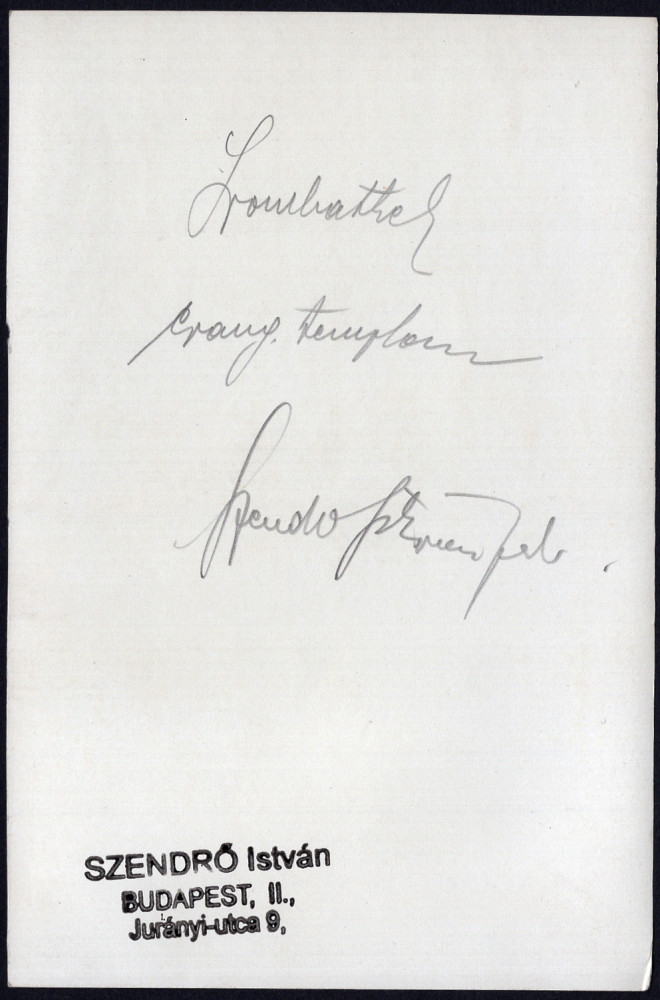 Szombathely
evang. templom
Szendrő István felv.
SZENDRŐ István
BUDAPEST, II.,
Jurányi-utca 9,